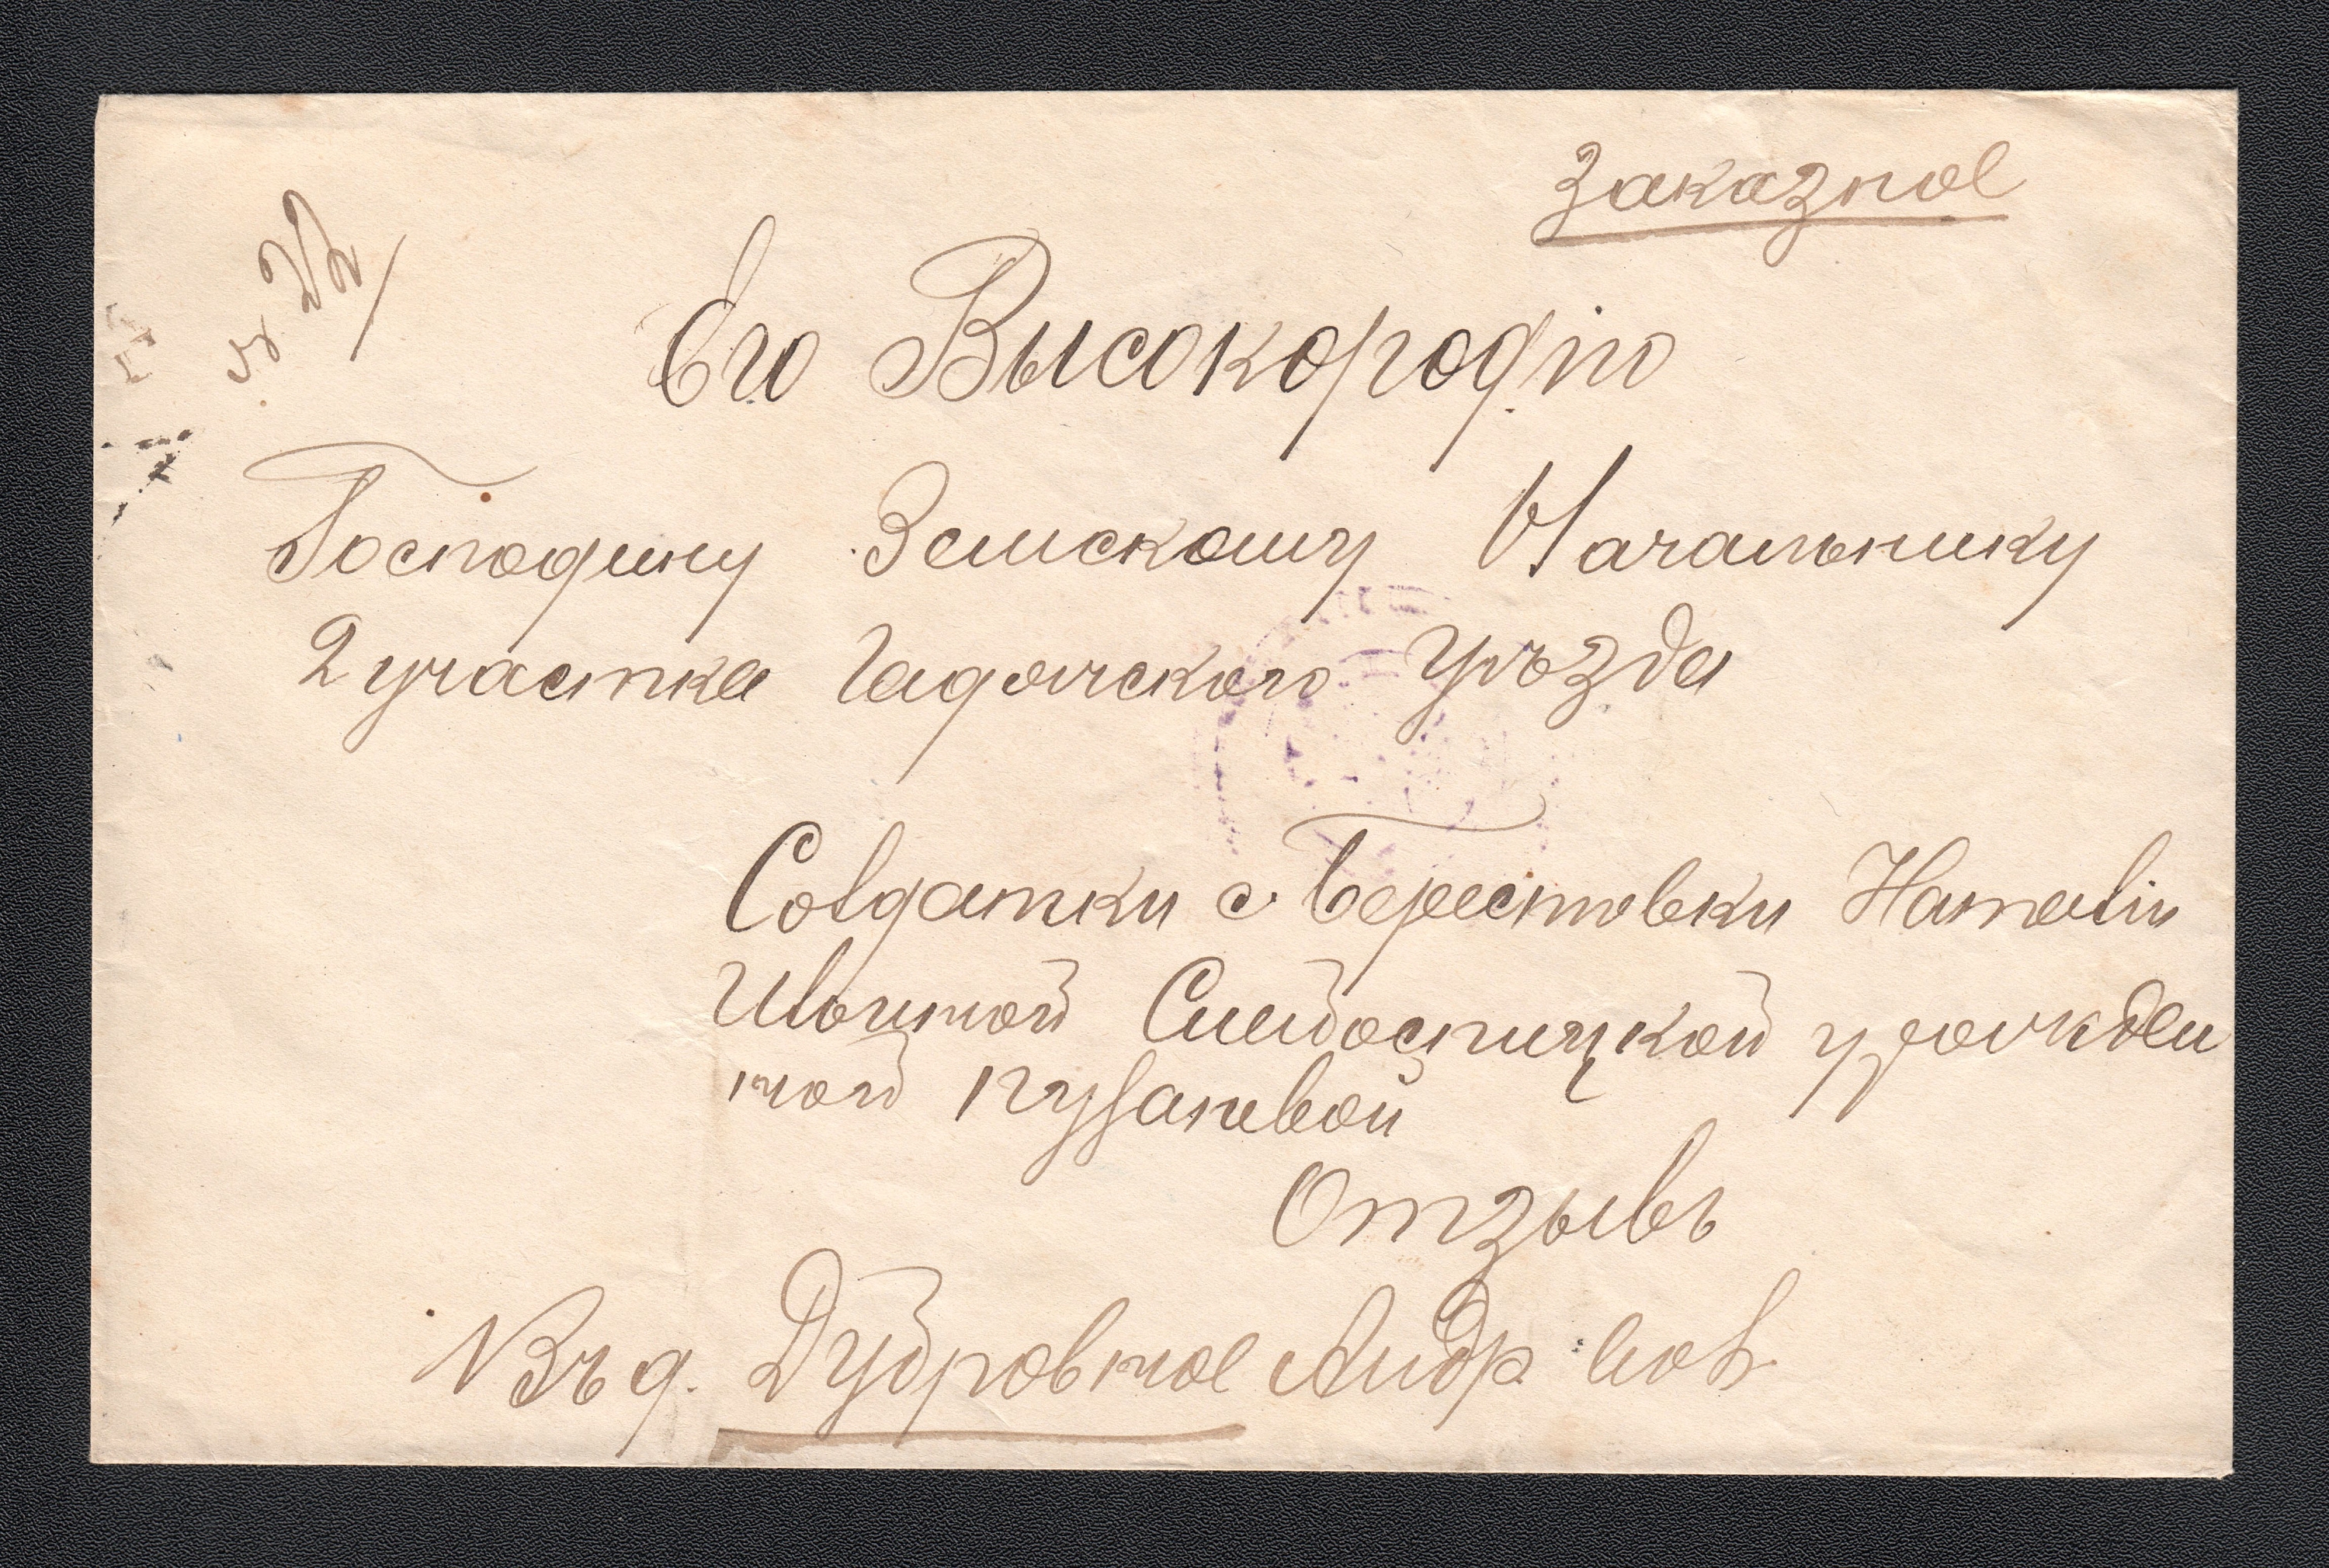 Заказное
Его Высокородію
Господину Земскому Начальнику
2 участка Гадячского уѣзда
Солдатки с. Берестовки Наталіи
Ивановой Слободницкой урожден
ной Пузановой
Отзывъ
Въ д. Дубровное